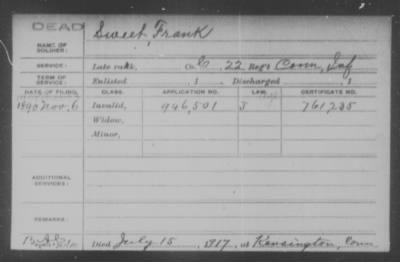 DEAD
NAME OF SOLDIER: Sweet, Frank
SERVICE: Late rank, Co. G, 22 Reg't Conn. Inf
TERM OF SERVICE: Enlisted , 1 Discharged , 1
DATE OF FILING. CLASS. APPLICATION NO. LAW. CERTIFICATE NO.
1890 Nov. 6 Invalid, 946,501 J 761,235
Widow,
Minor,
ADDITIONAL SERVICES:
REMARKS:
Died July 15, 1917, at Kensington, Conn